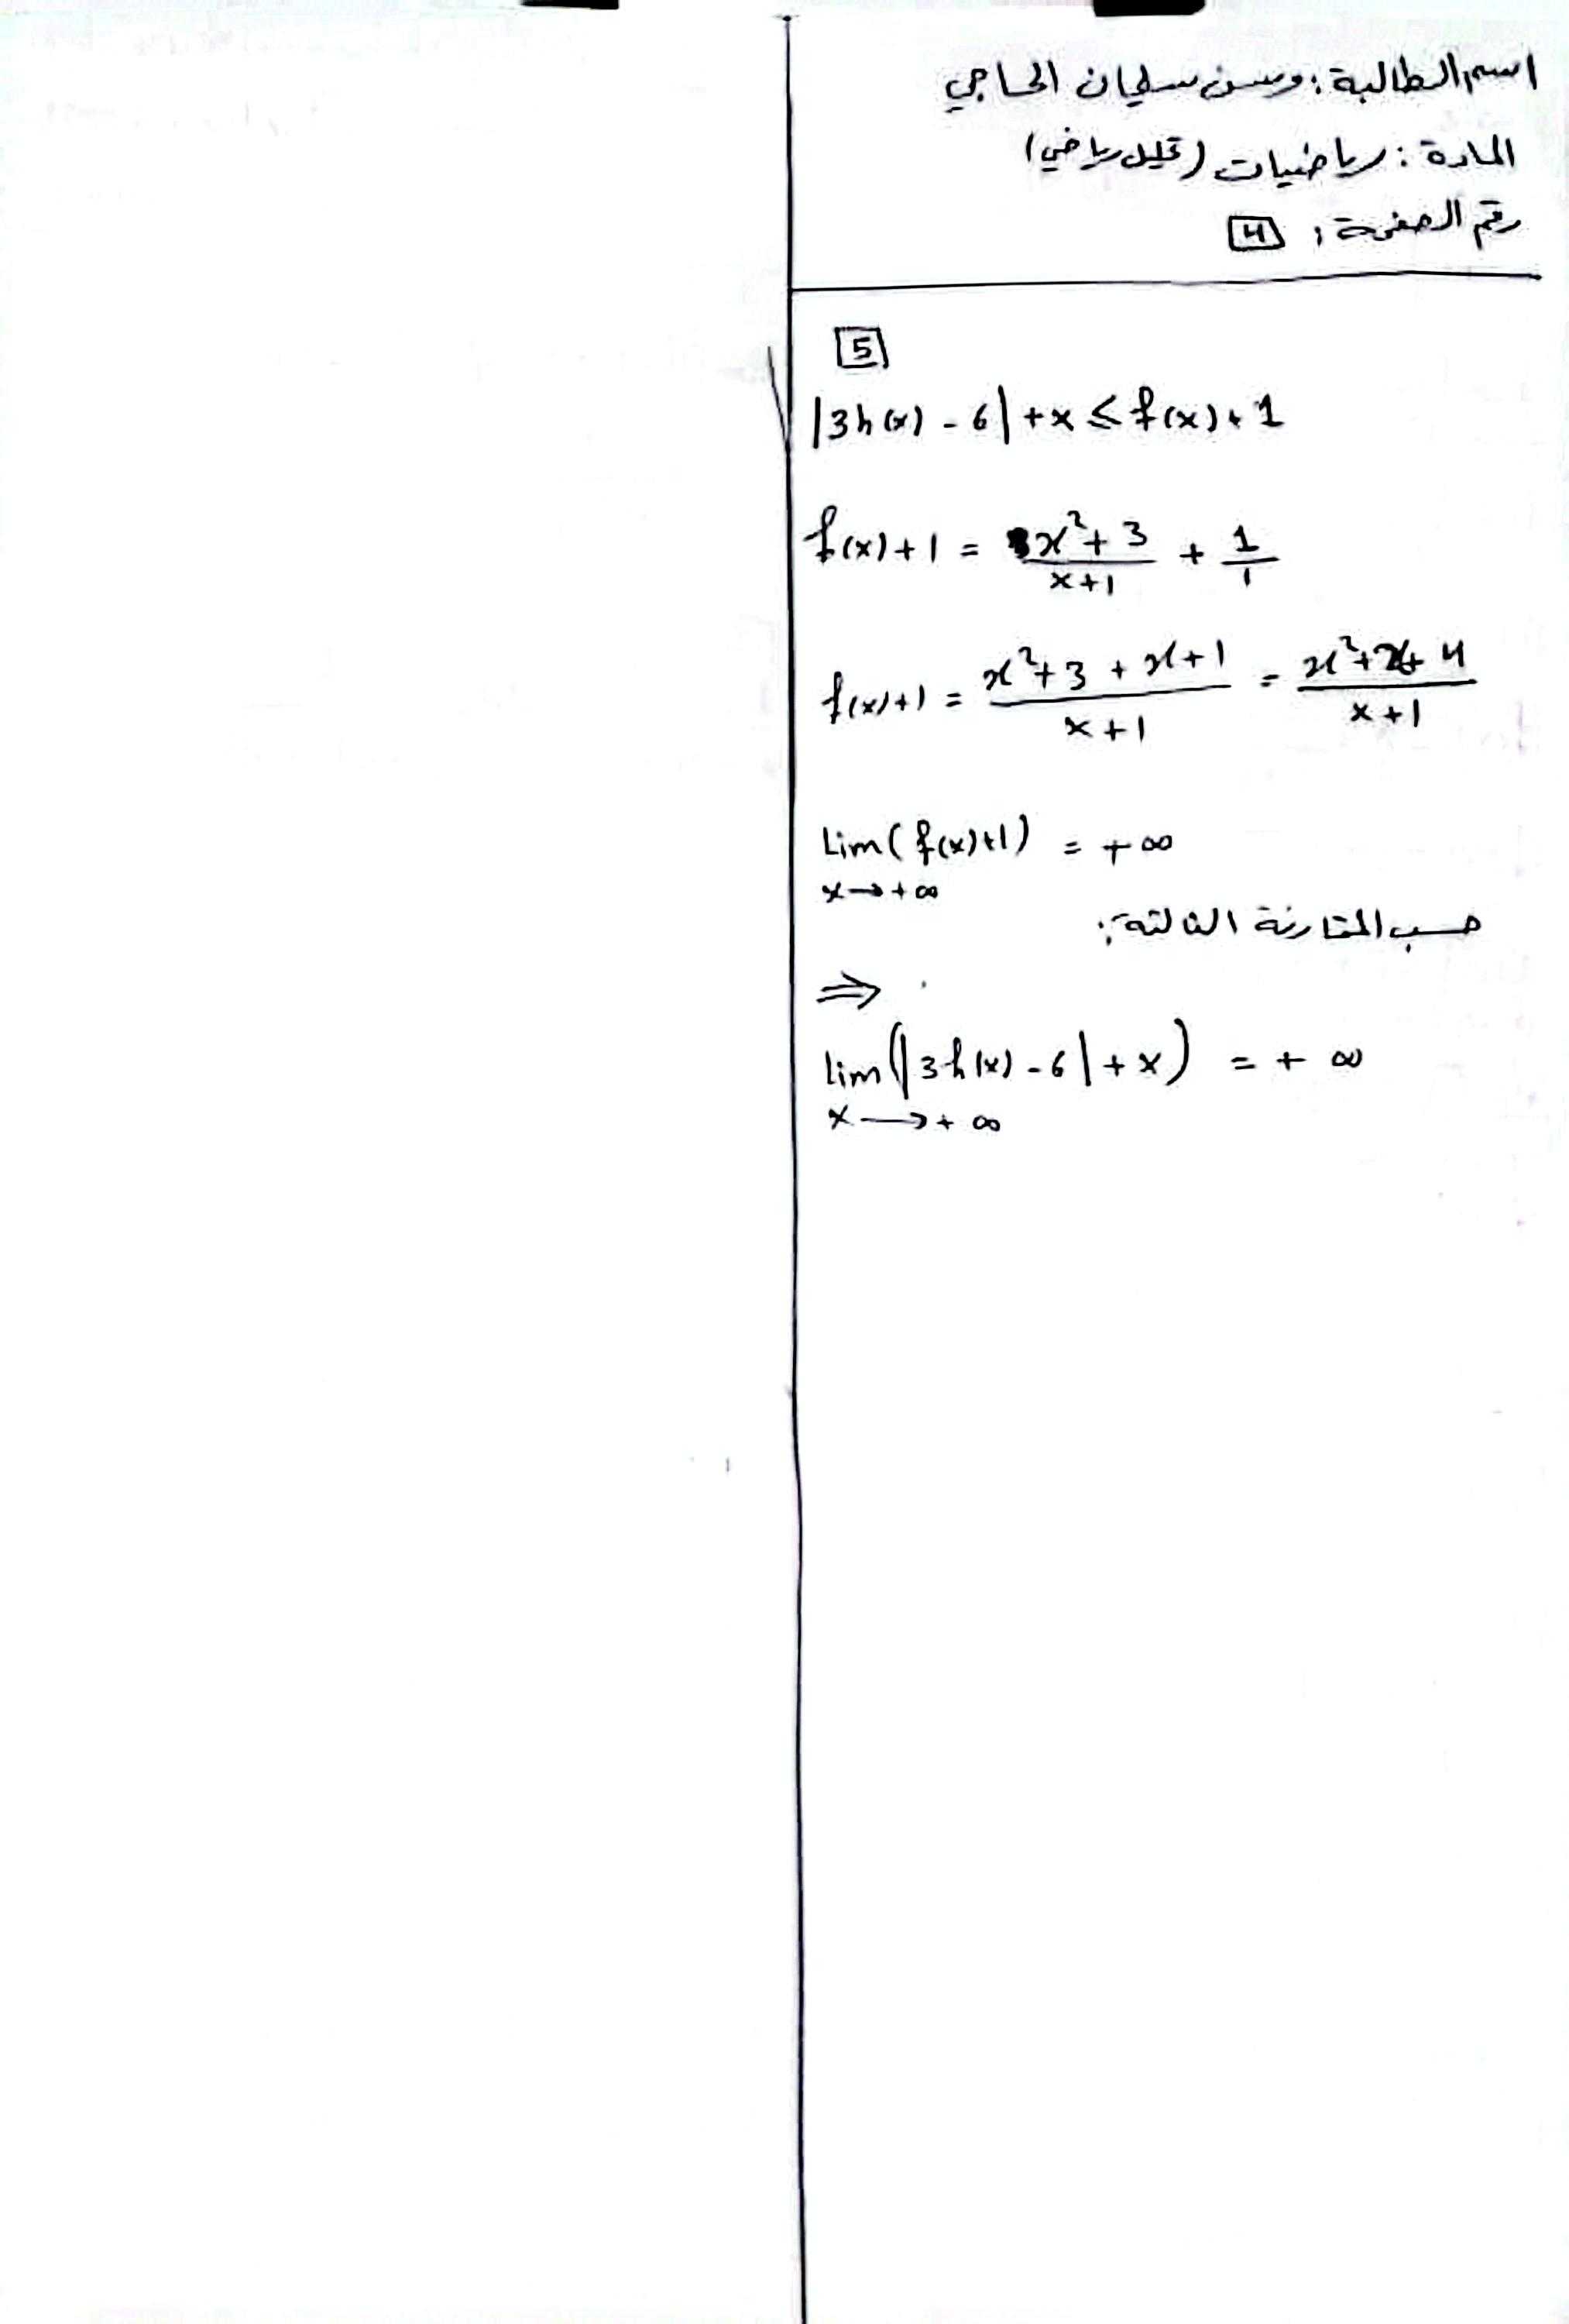 اسم الطالبة: وسن سليمان الحاجي
المادة: رياضيات (تحليل رياضي)
رقم الصفحة: 4
5
|3h(x) - 6| + x ≤ f(x) + 1
f(x) + 1 = x² + 3 / x + 1 + 1 / 1
f(x) + 1 = x² + 3 + x + 1 / x + 1 = x² + x + 4 / x + 1
Lim (f(x)+1) = + ∞
x → + ∞
حسب المقارنة الثالثة:
⇒
lim (|3h(x) - 6| + x) = + ∞
x → + ∞